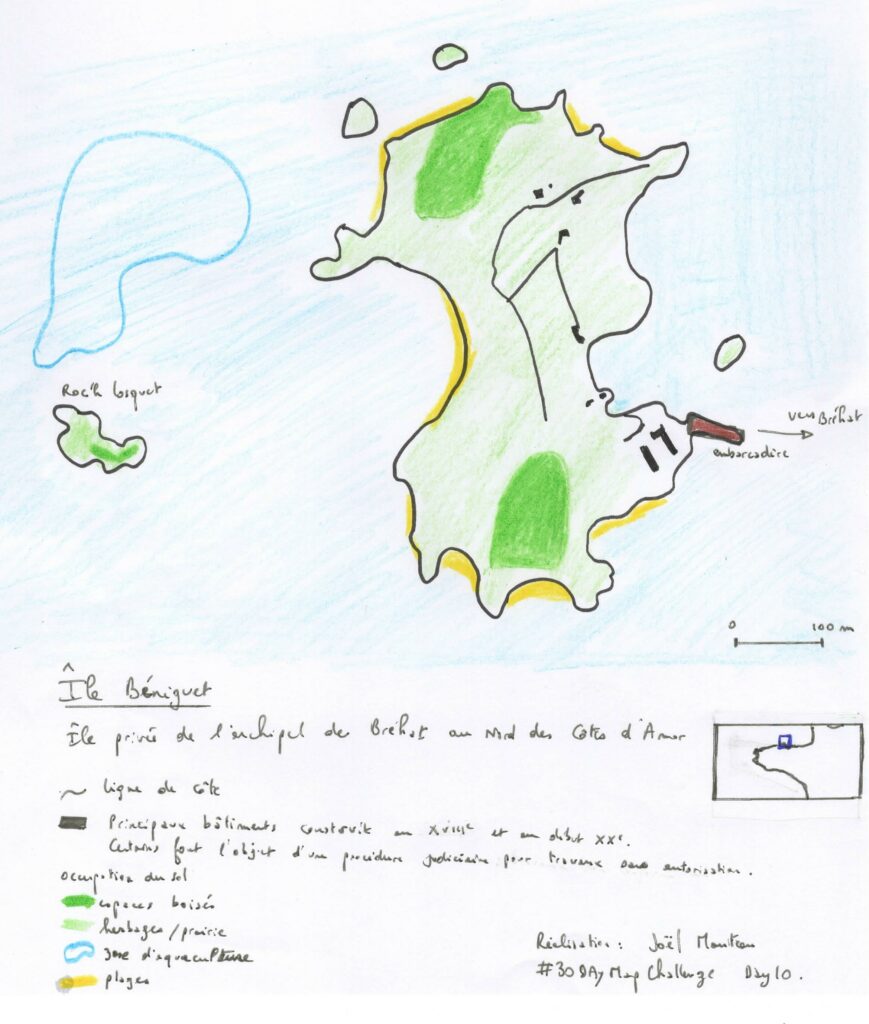 Roc'h losquet
vers Bréhat
embarcadère
0 100 m
Île Béniguet
Île privée de l'archipel de Bréhat au Nord des Côtes d'Armor
ligne de côte
Principaux bâtiments construits au XVIIIe et au début XXe.
Certains font l'objet d'une procédure judiciaire pour travaux sans autorisation.
occupation du sol
espaces boisés
herbages/prairie
zone d'aquaculture
plages
Réalisation : Joël
#30DAyMapChallenge Day10.